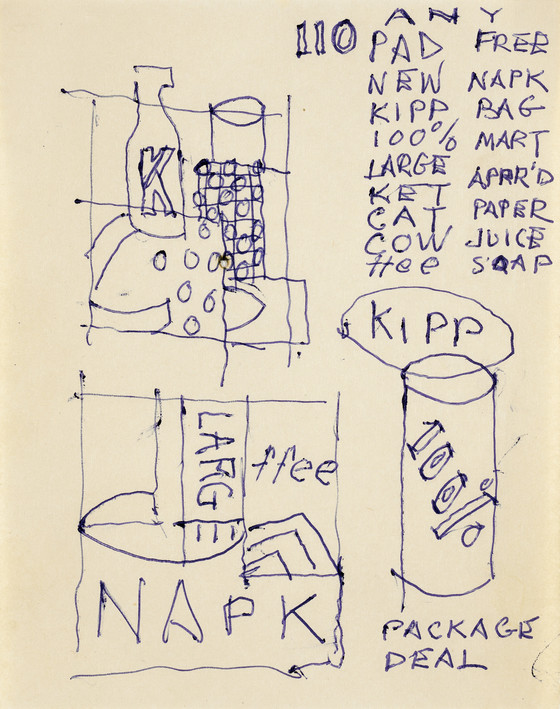 110
ANY
PAD FREE
NEW NAPK
KIPP BAG
100% MART
LARGE APPR'D
KET PAPER
CAT JUICE
COW SOAP
ffee
K
KIPP
100%
LARG
ffee
NAPK
PACKAGE
DEAL